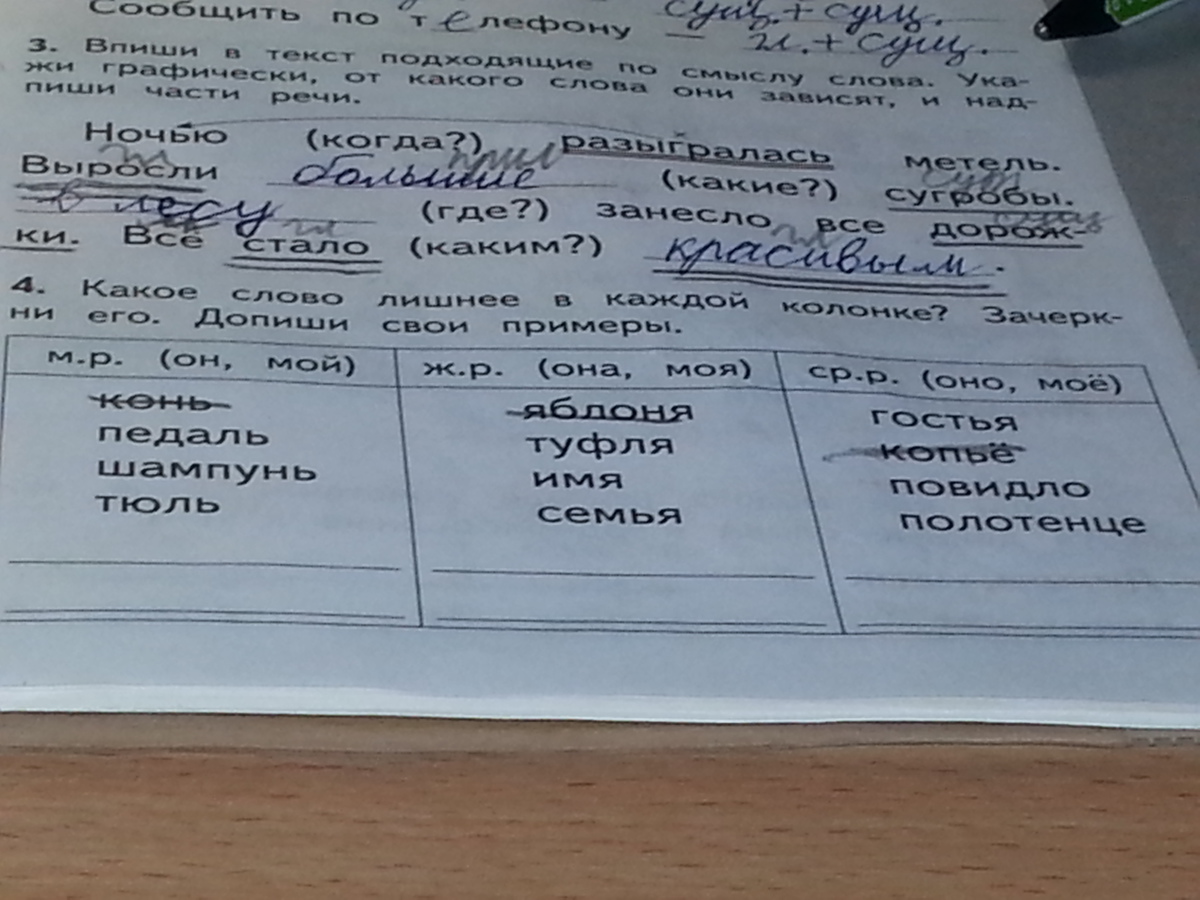 Сообщить по телефону — сущ. + сущ.
гл. + сущ.
3. Впиши в текст подходящие по смыслу слова. Ука-
жи графически, от какого слова они зависят, и над-
пиши части речи.
Ночью (когда?) разыгралась метель.
гл прил сущ
Выросли большие (какие?) сугробы.
в лесу (где?) занесло все дорож-
ки. Всё стало (каким?) красивым.
4. Какое слово лишнее в каждой колонке? Зачерк-
ни его. Допиши свои примеры.
м.р. (он, мой) ж.р. (она, моя) ср.р. (оно, моё)
конь яблоня гостья
педаль туфля копьё
шампунь имя повидло
тюль семья полотенце